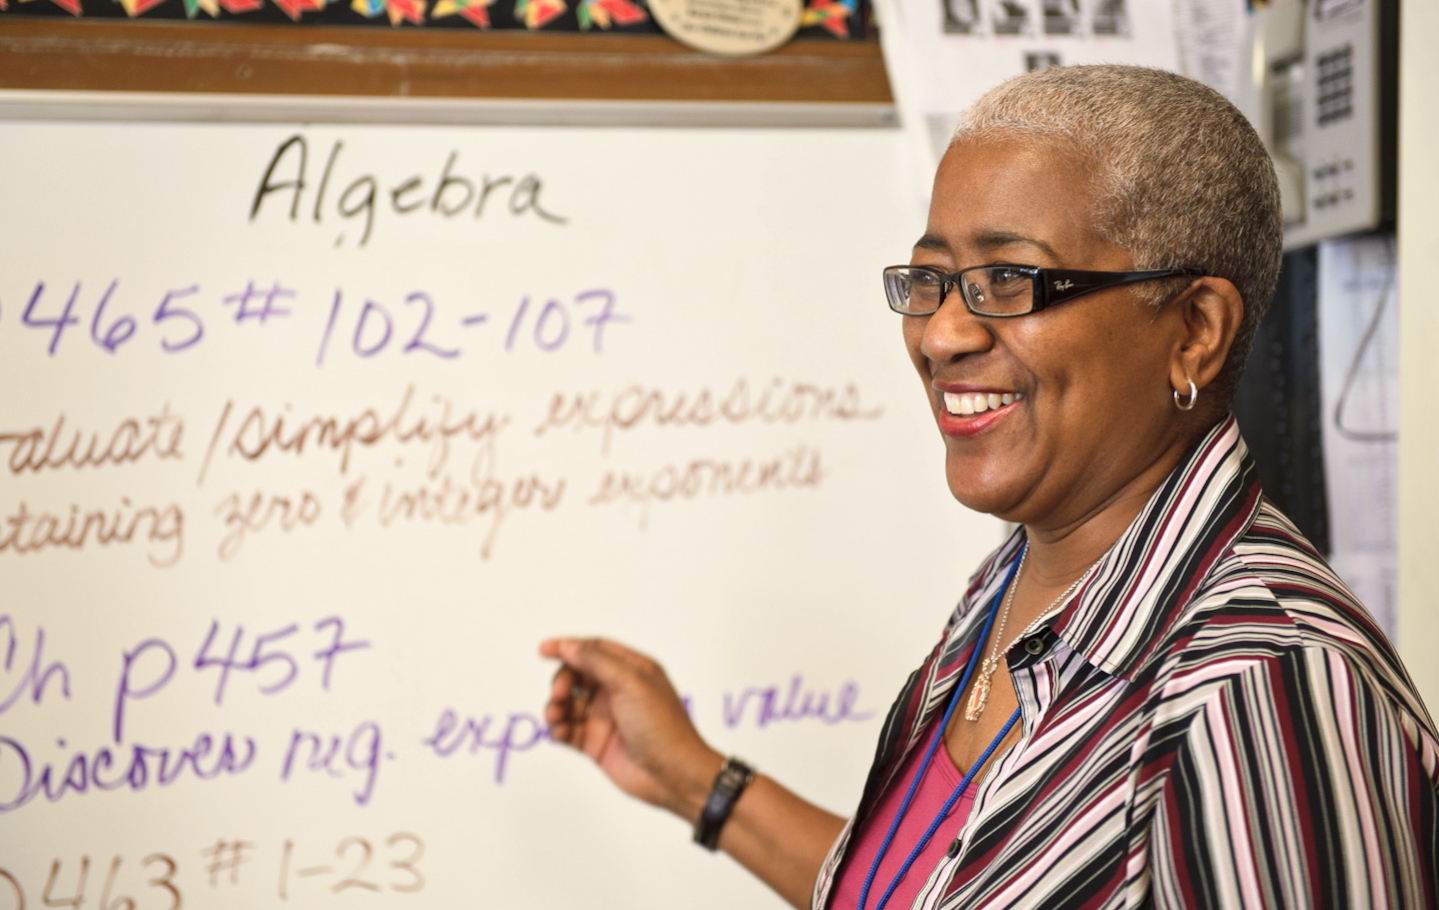 Algebra
465 # 102-107
aluate/simplify expressions
taining zero & integer exponents
Ch p 457
Discover neg. exp value
463 # 1-23
Ray-Ban